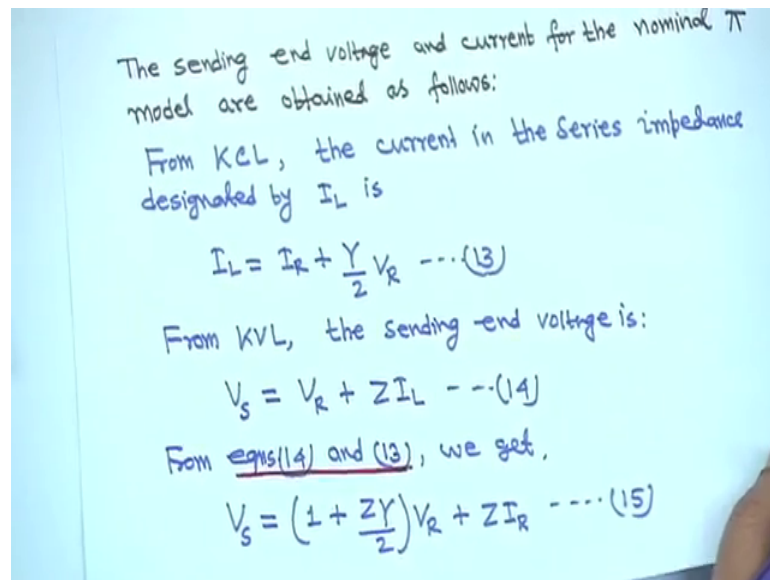 The sending end voltage and current for the nominal π
model are obtained as follows:
From KCL, the current in the series impedance
designated by I_L is
I_L = I_R + Y/2 V_R ---(13)
From KVL, the sending-end voltage is:
V_S = V_R + ZI_L ---(14)
From eqns(14) and (13), we get,
V_S = (1 + ZY/2)V_R + ZI_R ----(15)